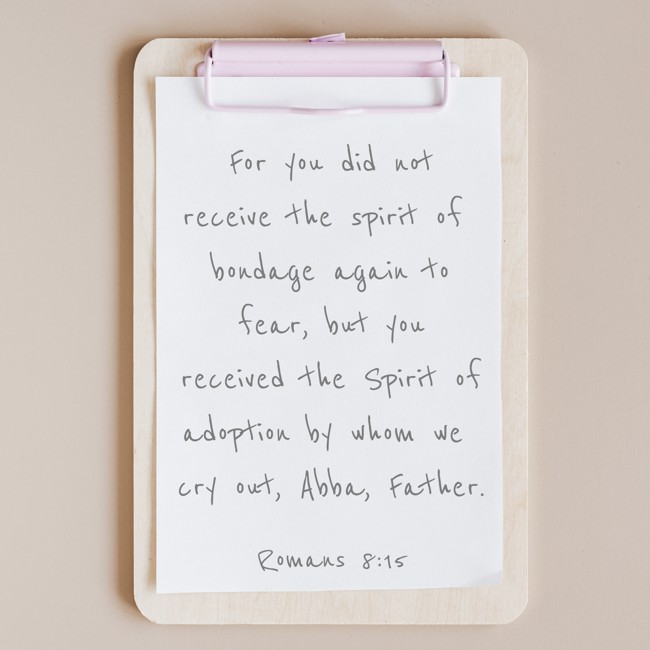 For you did not
receive the spirit of
bondage again to
fear, but you
received the Spirit of
adoption by whom we
cry out, Abba, Father.
Romans 8:15